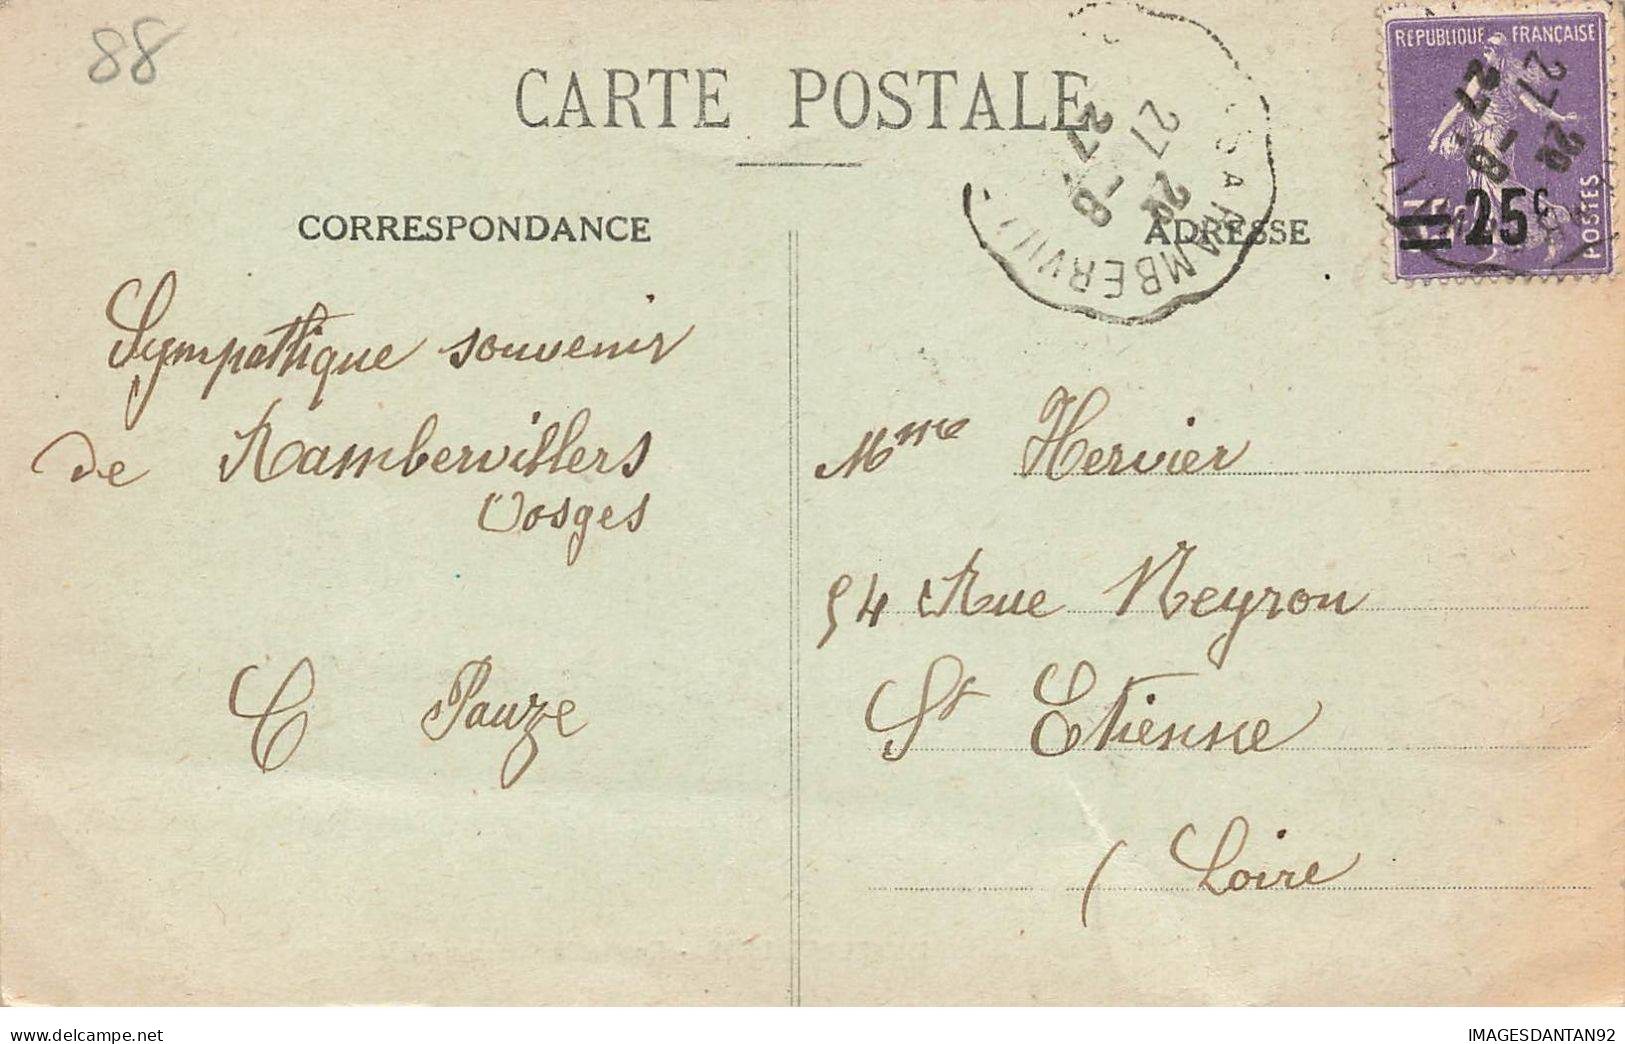 88
CARTE POSTALE
CORRESPONDANCE
ADRESSE
RÉPUBLIQUE FRANÇAISE
POSTES
25c
27 -8
27
27 -8
27
Sympathique souvenir
de Rambervillers
Vosges
C Pauze
Mme Hervier
54 Rue Neyron
St Etienne
( Loire
delcampe.net
IMAGESDANTAN92